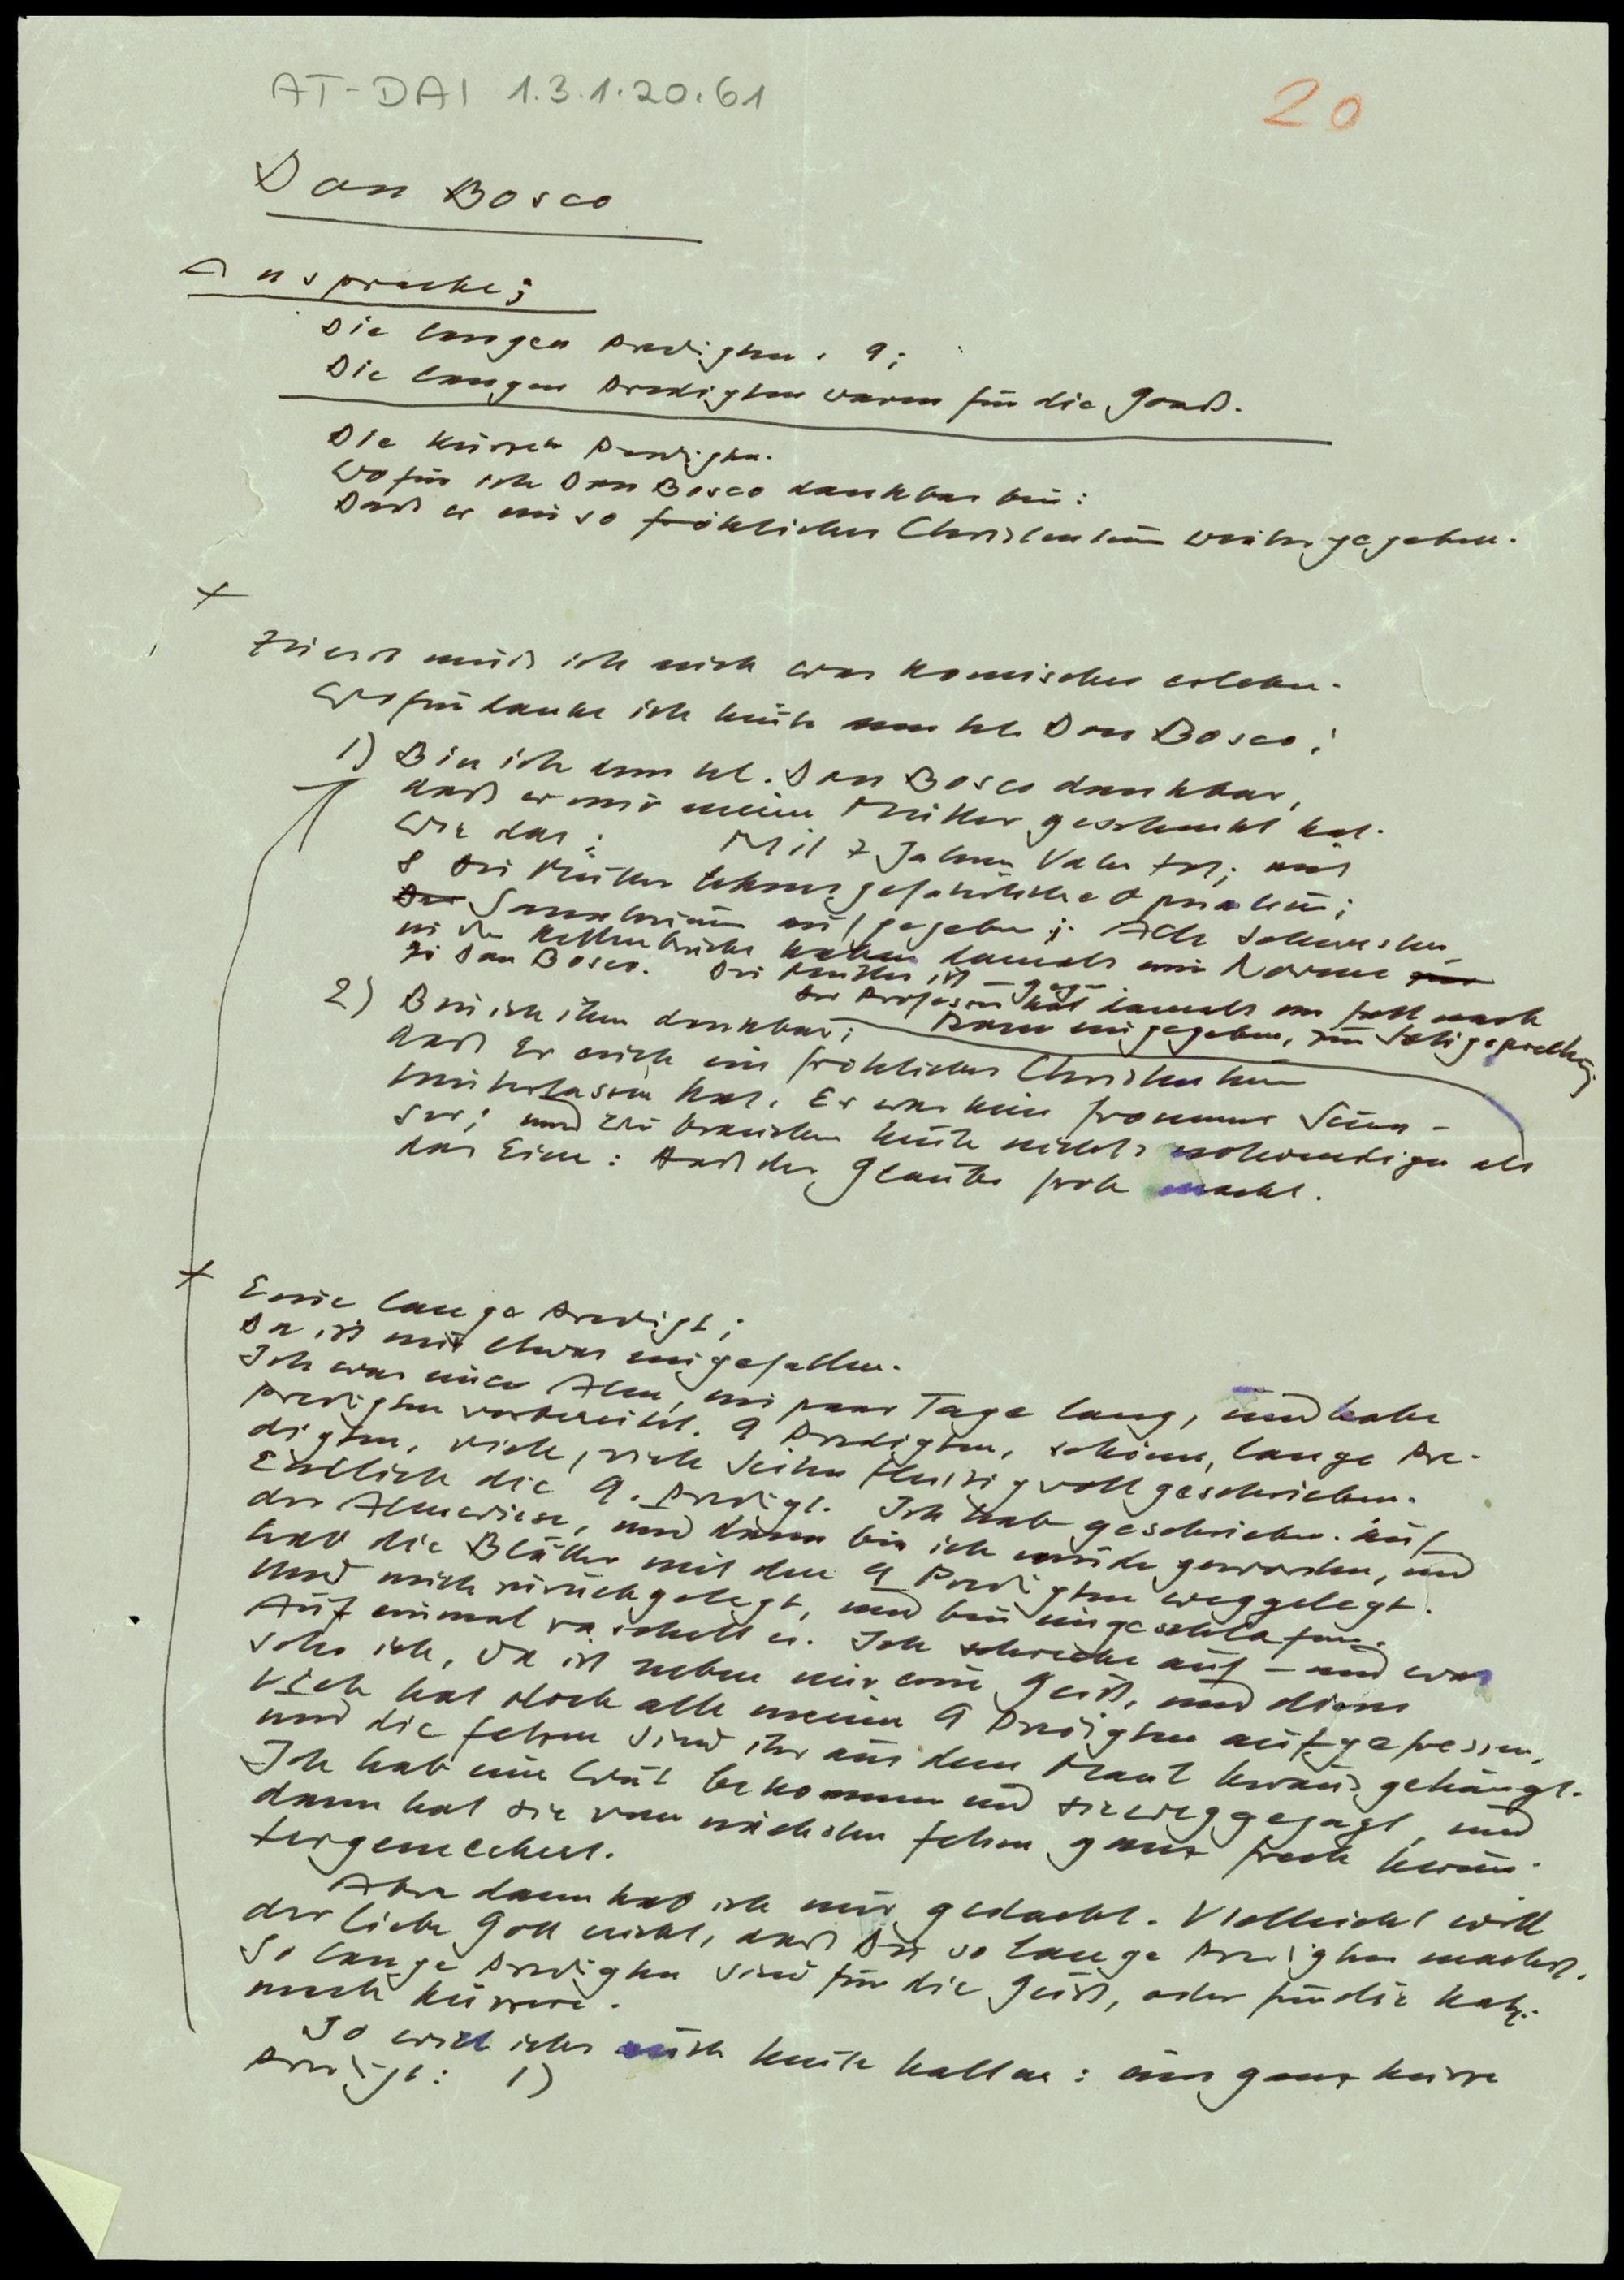 AT-DAI 1.3.1.20.61
20
Don Bosco
Ansprache;
Die langen Predigten. 9;
Die langen Predigten waren für die Goaß.
Die kürzeste Predigten.
Wofür ich Don Bosco dankbar bin:
Daß er ein so fröhliches Christentum weitergegeben.
Zuerst muß ich euch was komisches erzählen.
Wofür danke ich heute dem hl. Don Bosco;
1) Bin ich dem hl. Don Bosco dankbar,
daß er mir meine Mutter geschenkt hat.
Wie das: Mit 7 Jahren Vater tot; mit
8 die Mutter lebensgefährliche Operation;
Sanatorium aufgegeben; Alle Schwestern
in der Kettenbrücke haben damals eine Novene
zu Don Bosco. Die Mutter ist
Der Professor hat damals den Fall nach
Rom eingegeben, zur Seligsprechung.
2) Bin ich ihm dankbar;
daß Er euch ein fröhliches Christentum
hinterlassen hat. Er war kein frommer Seuf-
zer; und wir brauchen heute nichts notwendiger als
das Eine: Daß der Glaube froh macht.
Eine lange Predigt;
Da ist mir etwas eingefallen.
Ich war auf einer Alm, ein paar Tage lang, und habe
Predigten vorbereitet. 9 Predigten, schöne, lange Pre-
digten, viele, viele Seiten fleissig vollgeschrieben.
Endlich die 9. Predigt. Ich hab geschrieben. Auf
der Almwiese, und dann bin ich müde geworden, und
hab die Blätter mit den 9 Predigten weggelegt.
Und mich zurückgelegt, und bin eingeschlafen.
Auf einmal raschelt es. Ich schrecke auf – und was
sehe ich, da ist neben mir eine Geiß, und dieses
Vieh hat doch alle meine 9 Predigten aufgefressen,
und die fetzen sind ihr aus dem Maul herausgehängt.
Ich hab eine Wut bekommen und sie weggejagt, und
dann hat sie vom nächsten felsen ganz frech herun-
tergemeckert.
Aber dann hab ich mir gedacht. Vielleicht will
der liebe Gott nicht, daß Du so lange Predigten machst.
So lange Predigten sind für die Geiß, oder für die Katz.
mach kürzere.
So will ichs auch heute halten: eine ganz kurze
Predigt: 1)